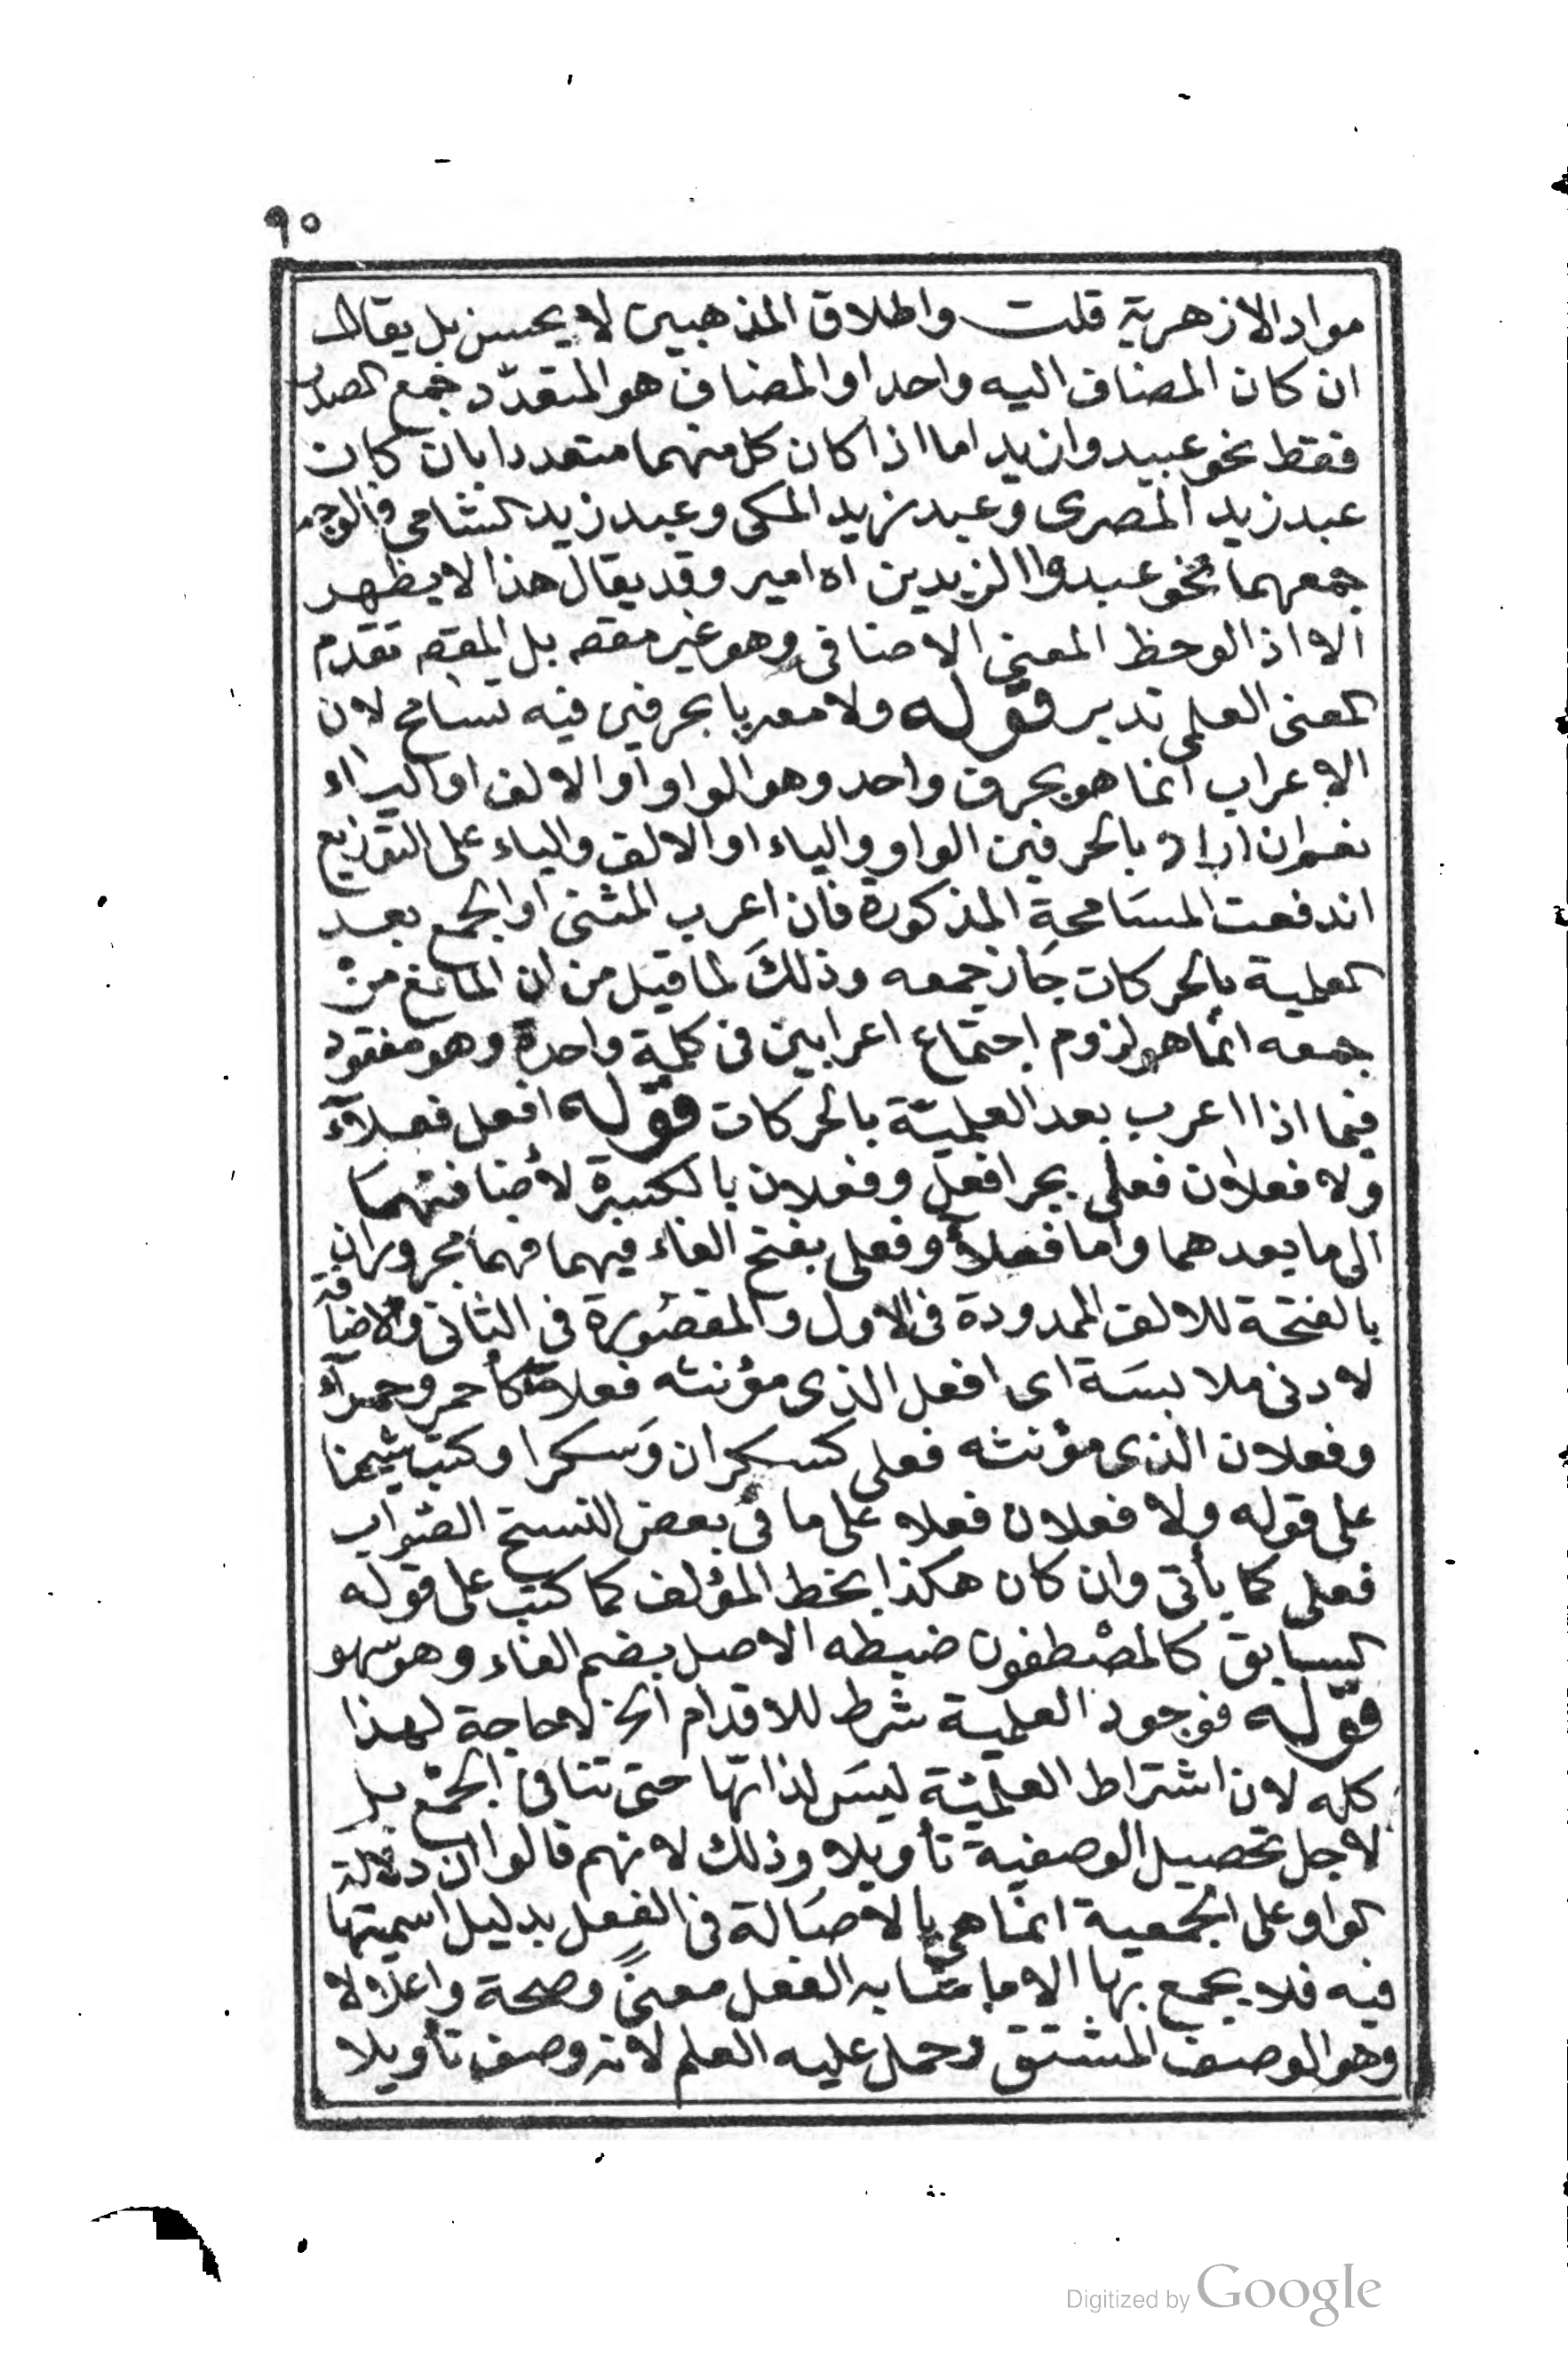 ٩٠
مواد الازهرية قلت واطلاق المذهبين لا يحسن بل يقال
ان كان المضاف اليه واحدا والمضاف هو المتعدّد جمع الصدر
فقط نحو عبيدوا زيد اما اذا كان كل منهما متعددا بان كان
عبد زيد المصرى وعبد زيد المكى وعبد زيد الشامى فالوجه
جمعهما نحو عبدوا الزيدين اه امير وقد يقال هذا لا يظهر
الا اذا لوحظ المعنى الاضافى وهو غير مقصه بل المقصه تقدم
المعنى العلمى تدبر قوله ولا معربا بحرفين فيه تسامح لان
الاعراب انما هو بحرف واحد وهو الواو او الالف او الياء
نعم ان اراد بالحرفين الواو والياء او الالف والياء على التوزيع
اندفعت المسامحة المذكورة فان اعرب المثنى او الجمع بعد
العلمية بالحركات جاز جمعه وذلك لما قيل من ان المانع من
جمعه انما هو لزوم اجتماع اعرابين فى كلمة واحدة وهو مفقود
فيما اذا اعرب بعد العلميّة بالحركات قوله افعل فعلاء
ولا فعلان فعلى بجر افعل وفعلان بالكسرة لأضافتهما
الى ما بعدهما واما فعلاء وفعلى بفتح الفاء فيهما فهما مجروران
بالفتحة للالف الممدودة فى الاول والمقصورة فى الثانى والاضافة
لادنى ملابسة اى افعل الذى مؤنثه فعلاء كأحمر وحمراء
وفعلان الذى مؤنثه فعلى كسكران وسكرا وكتب شيخنا
على قوله ولا فعلان فعلاء على ما فى بعض النسخ الصواب
فعلى كما يأتى وان كان هكذا بخط المؤلف كما كتب على قوله
السابق كالمصْطفون ضبطه الاصل بضم الفاء وهو سهو
قوله فوجود العلمية شرط للاقدام الخ لا حاجة لهذا
كله لان اشتراط العلميّة ليس لذاتها حتى تنافى الجمع بل
لاجل تحصيل الوصفية تأويلا وذلك لانهم قالوا ان دلالة
الواو على الجمعية انما هى بالاصالة فى الفعل بدليل اسميتها
فيه فلا يجمع بها الا ما شابه الفعل معنىً وصحة واعلالا
وهو الوصف المشتق وحمل عليه العلم لانه وصف تأويلا
Digitized by Google